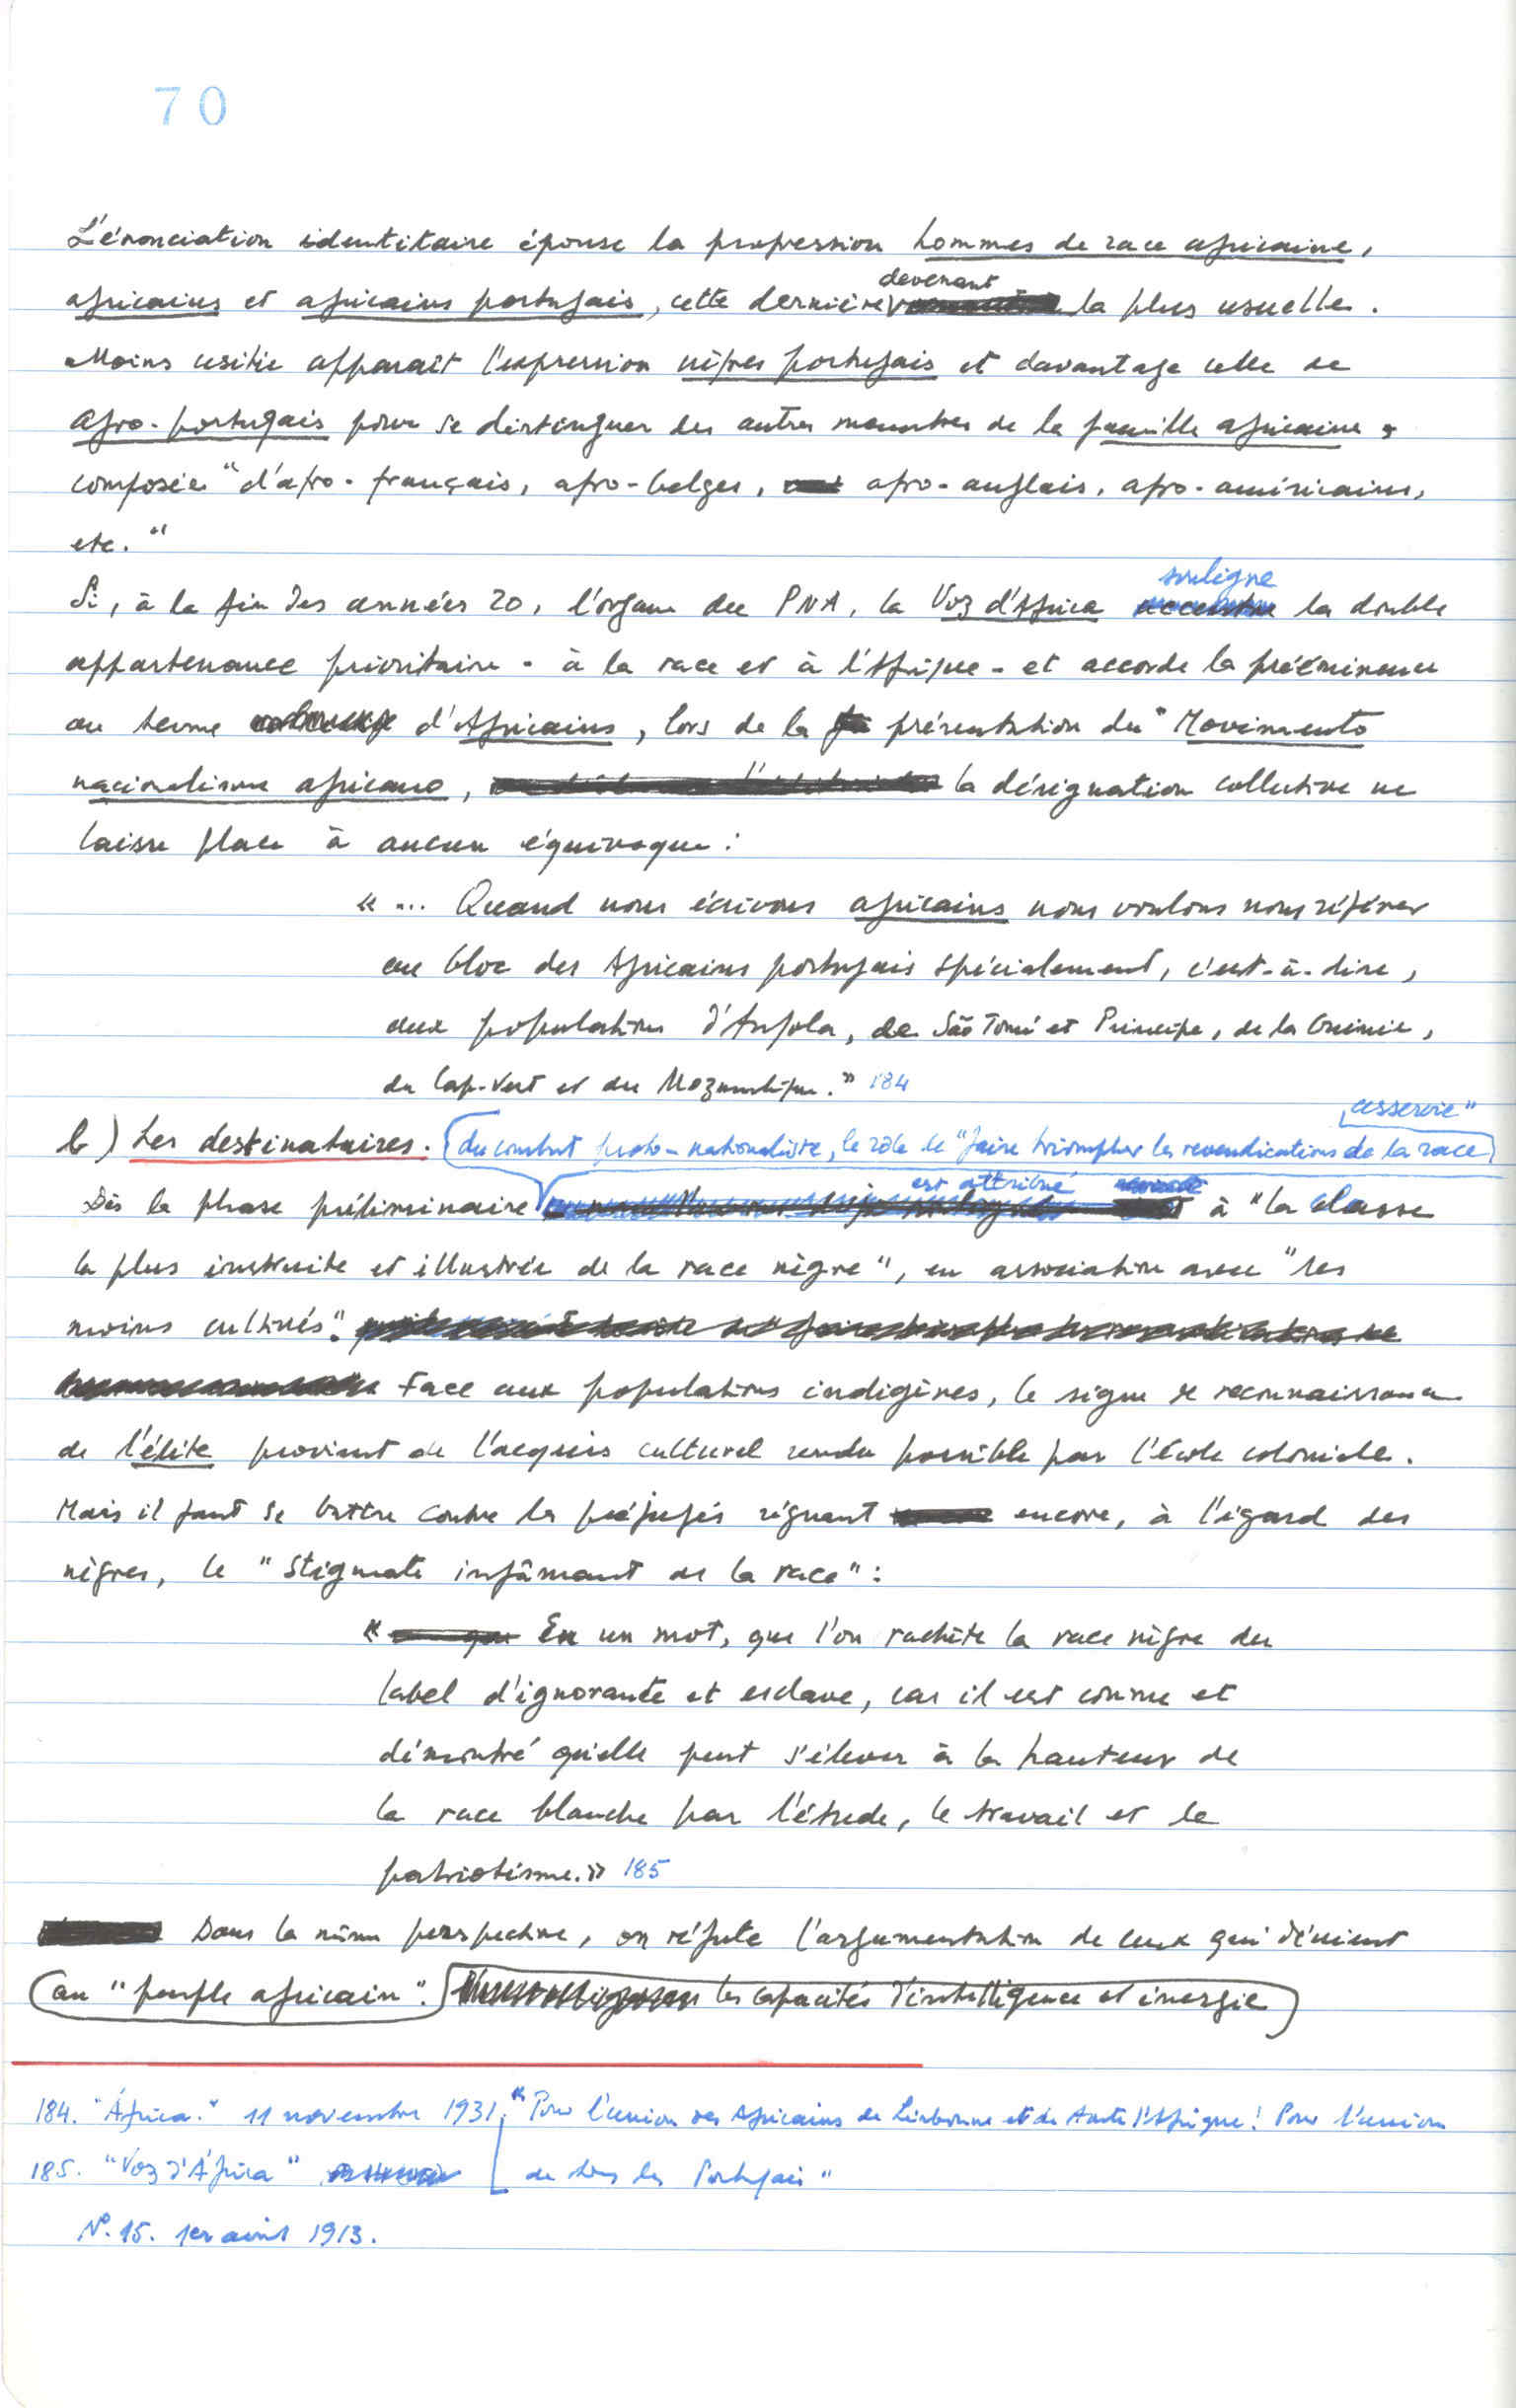 70
L'énonciation identitaire épouse la progression hommes de race africaine,
africains et africains portugais, cette dernière devenant la plus usuelle.
Moins usitée apparaît l'expression nègres portugais et davantage celle de
afro-portugais pour se distinguer des autres membres de la famille africaine,
composée "d'afro-français, afro-belges, afro-anglais, afro-américains,
etc."
Si, à la fin des années 20, l'organe du PNA, la Voz d'Africa souligne la double
appartenance prioritaire - à la race et à l'Afrique - et accorde la prééminence
au terme d'Africains, lors de la présentation du "Movimento
nacionalismo africano, la désignation collective ne
laisse place à aucun équivoque :
« ... Quand nous écrivons africains nous voulons nous référer
au bloc des Africains portugais spécialement, c'est-à-dire,
aux populations d'Angola, de São Tomé et Principe, de la Guinée,
du Cap-Vert et du Mozambique. » 184
asservie"
b) Les destinataires. du combat proto-nationaliste, le rôle de "faire triompher les revendications de la race
Dès la phase préliminaire est attribué à "la classe
la plus instruite et illustrée de la race nègre", en association avec "les
moins cultivés".
Face aux populations indigènes, le signe de reconnaissance
de l'élite provient de l'acquis culturel rendu possible par l'école coloniale.
Mais il faut se battre contre les préjugés régnant encore, à l'égard des
nègres, le "stigmate infâmant de la race" :
« En un mot, que l'on rachète la race nègre du
label d'ignorante et esclave, car il est connu et
démontré qu'elle peut s'élever à la hauteur de
la race blanche par l'étude, le travail et le
patriotisme. » 185
Dans la même perspective, on réfute l'argumentation de ceux qui dénient
au "peuple africain". les capacités d'intelligence et énergie
184. "África." 11 novembre 1931, "Pour l'union des Africains de Lisbonne et de toute l'Afrique! Pour l'union
185. "Voz d'África" de tous les Portugais"
Nº. 15. 1er avril 1913.